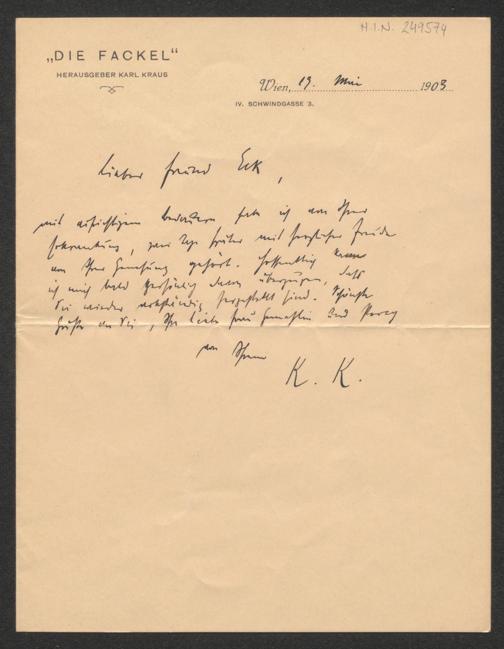 H.I.N. 249574
„DIE FACKEL“
HERAUSGEBER KARL KRAUS
Wien, 19. Mai 1903
IV. SCHWINDGASSE 3.
Lieber Freund Eck,
mit aufrichtigem Bedauern habe ich von Ihrer
Erkrankung, zwei Tage später mit herzlicher Freude
von Ihrer Genesung gehört. Hoffentlich kann
ich mich bald persönlich davon überzeugen, daß
Sie wieder vollständig hergestellt sind. Schönste
Grüße an Sie, Ihre liebe Frau Gemahlin und
von Ihrem
K. K.